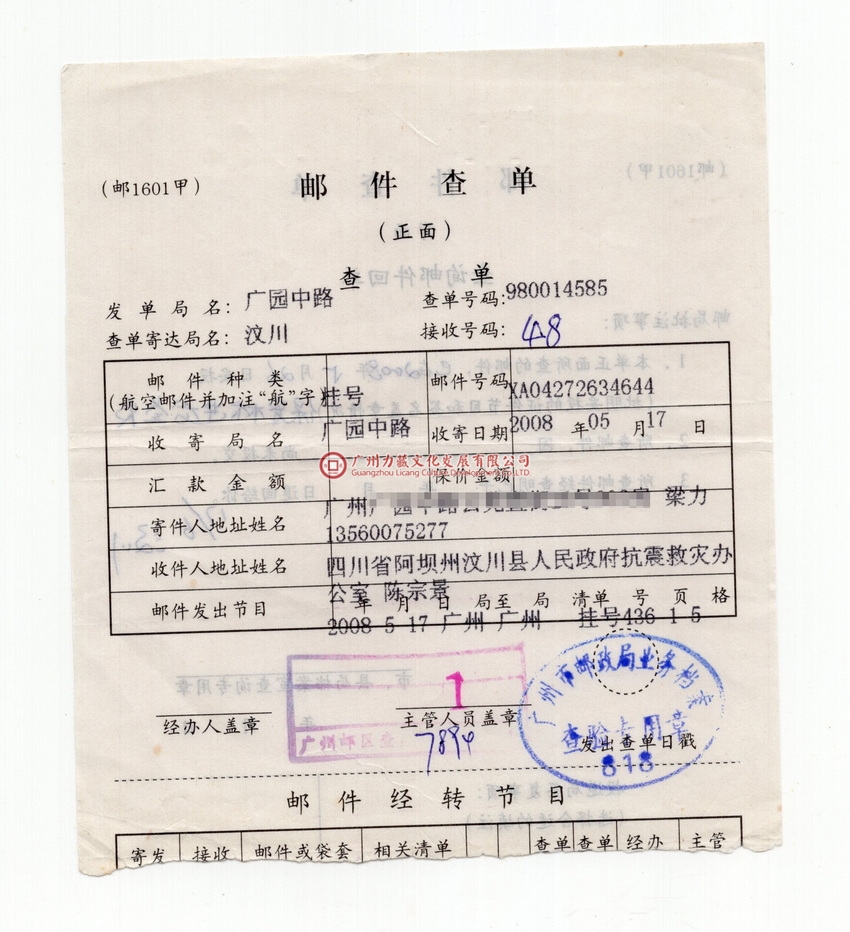 (邮1601甲)
邮件查单
(正面)
查单
发单局名：广园中路 查单号码：980014585
查单寄达局名：汶川 接收号码：48
邮件种类 (航空邮件并加注“航”字) 挂号 邮件号码 XA04272634644
收寄局名 广园中路 收寄日期 2008年05月17日
广州力藏文化发展有限公司
Guangzhou Licang Cultural Development Co.LTD
汇款金额 保价金额
寄件人地址姓名 广州 梁力
13560075277
收件人地址姓名 四川省阿坝州汶川县人民政府抗震救灾办
公室 陈宗景
邮件发出节目 年月日局至局清单号页格
2008 5 17 广州 广州 挂号436 1 5
1
广州邮区查
经办人盖章 主管人员盖章 发出查单日戳
7894
广州市邮政局业务档案
查验专用章
818
邮件经转节目
寄发 接收 邮件或袋套 相关清单 查单 查单 经办 主管